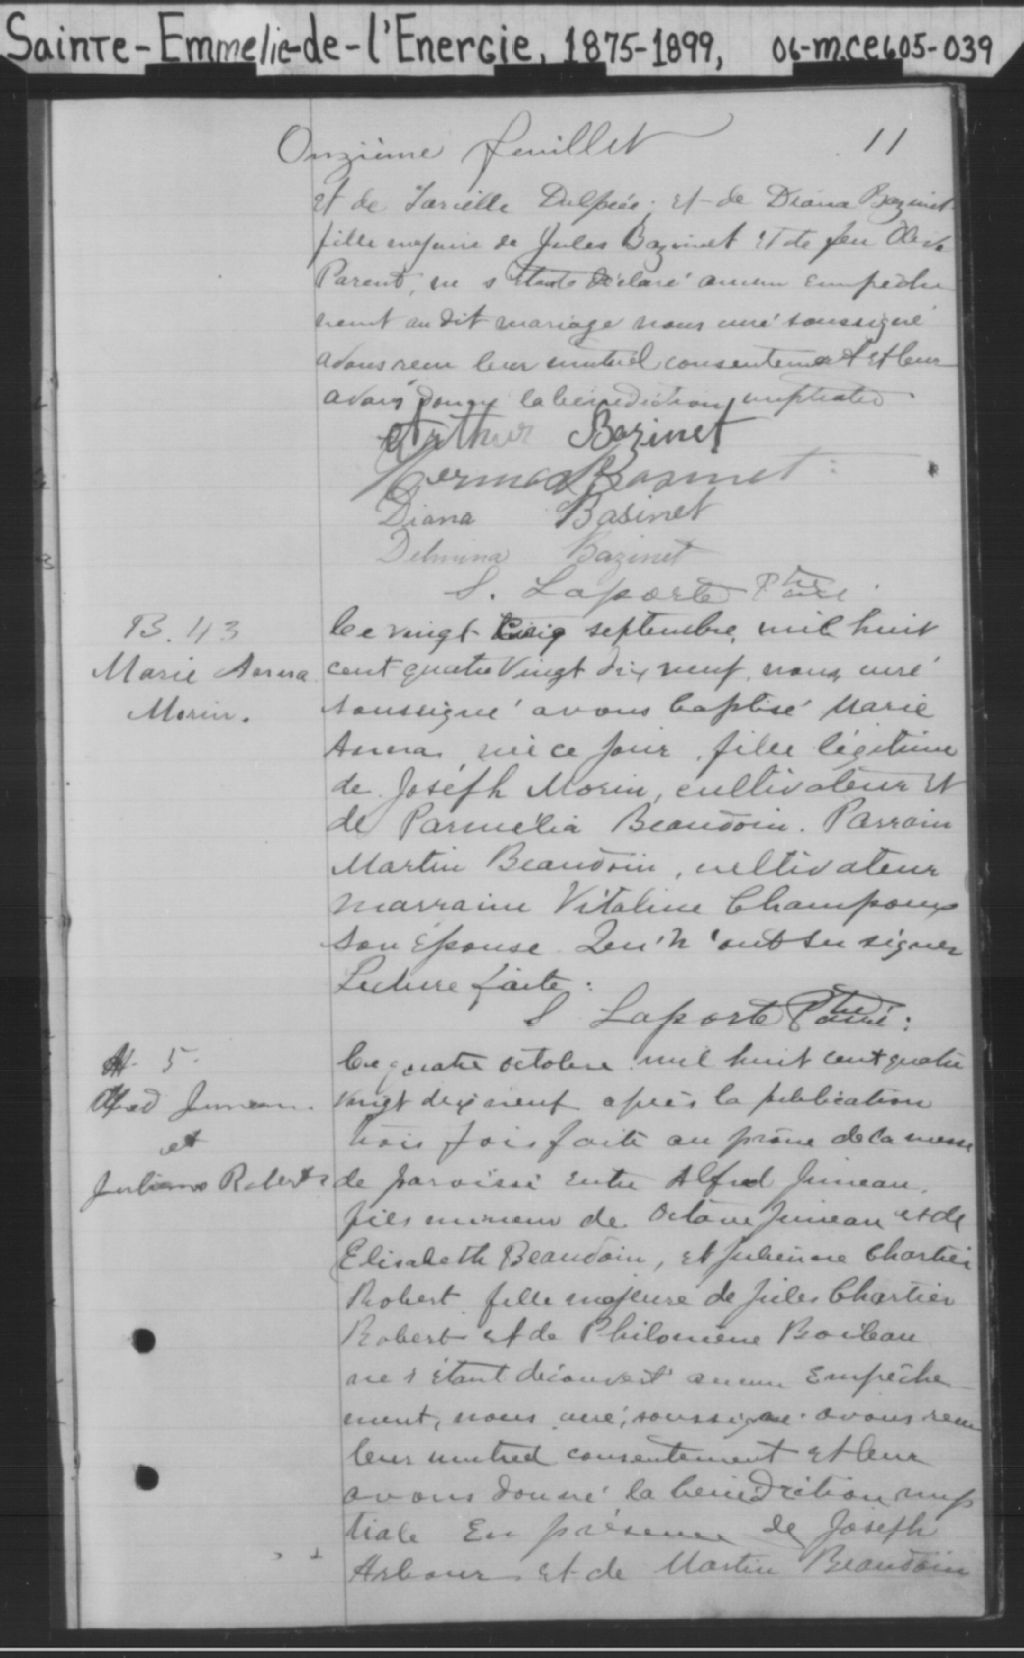 Sainte-Emmelie-de-l'Energie, 1875-1899, 06-M.CE605-039
Onzième feuillet 11
et de Delpée; et de Diana Bazinet
fille majeure de Jules Bazinet et de feu
Parent, ne s'étant déclaré aucun empêche
ment au dit mariage nous curé soussigné
avons recu leur mutuel consentement et leur
avons donné la bénédiction nuptiale.
Arthur Bazinet
Bazinet
Diana Basinet
Delmina Bazinet
S. Laporte Ptre curé
B. 43
Marie Anna
Morin.
Ce vingt cinq septembre, mil huit
cent quatre vingt dix neuf, nous, curé
soussigné avons baptisé Marie
Anna, née ce jour, fille légitime
de Joséph Morin, cultivateur et
de Parmélia Beaudoin. Parrain
Martin Beaudoin, cultivateur
marraine Vitaline Champoux
son épouse Qui n'ont su signer
Lecture faite:
S Laporte Ptre curé:
M. 5
Alfred Juneau
et
Julienne Robert
Ce quatre octobre mil huit cent quatre
vingt dix neuf après la publication
trois fois faite au prône de la messe
de paroisse entre Alfred Juneau,
fils mineur de Octave Juneau et de
Elisabeth Beaudoin, et Julienne Chartier
Robert fille majeure de Jules Chartier
Robert et de Philomène Boileau
ne s'étant découvert aucun Empêche
ment, nous curé, soussigné avons recu
leur mutuel consentement et leur
avons donné la bénédiction nup
tiale En présence de Joseph
Arbour et de Martin Beaudoin